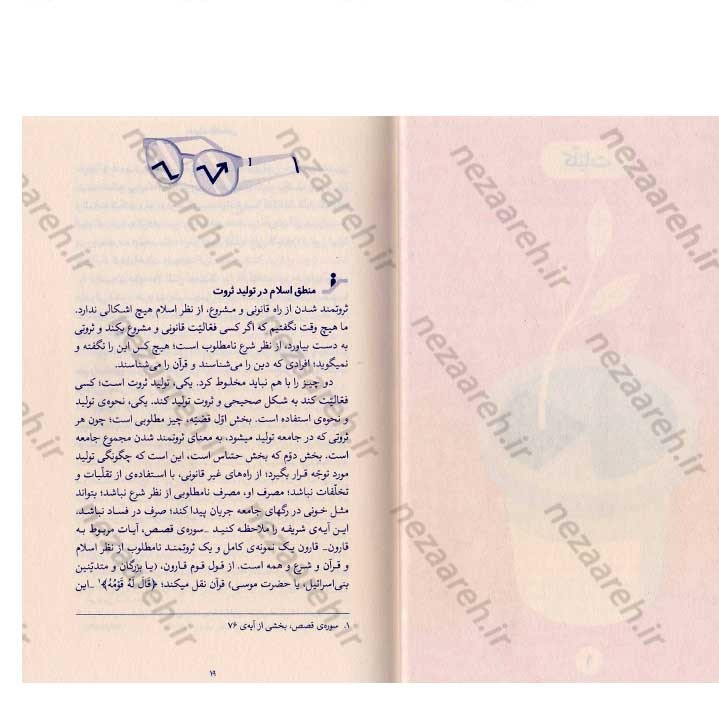 کلیات
۱
۱
منطق اسلام در تولید ثروت
ثروتمند شدن از راه قانونی و مشروع، از نظر اسلام هیچ اشکالی ندارد.
ما هیچ وقت نگفتیم که اگر کسی فعّالیّت قانونی و مشروع بکند و ثروتی
به دست بیاورد، از نظر شرع نامطلوب است؛ هیچ کس این را نگفته و
نمیگوید؛ افرادی که دین را می‌شناسند و قرآن را می‌شناسند.
دو چیز را با هم نباید مخلوط کرد. یکی، تولید ثروت است؛ کسی
فعّالیّت کند به شکل صحیحی و ثروت تولید کند. یکی، نحوه‌ی تولید
و نحوه‌ی استفاده است. بخش اوّل قضیّه، چیز مطلوبی است؛ چون هر
ثروتی که در جامعه تولید میشود، به معنای ثروتمند شدن مجموع جامعه
است. بخش دوّم که بخش حسّاس است، این است که چگونگی تولید
مورد توجّه قرار بگیرد؛ از راه‌های غیر قانونی، با استفاده‌ی از تقلّبات و
تخلّفات نباشد؛ مصرف او، مصرف نامطلوبی از نظر شرع نباشد؛ بتواند
مثل خونی در رگهای جامعه جریان پیدا کند؛ صرف در فساد نباشد.
این آیه‌ی شریفه را ملاحظه کنید _سوره‌ی قصص، آیات مربوط به
قارون_ قارون یک نمونه‌ی کامل و یک ثروتمند نامطلوب از نظر اسلام
و قرآن و شرع و همه است. از قول قوم قارون، (یا بزرگان و متدیّنین
بنی‌اسرائیل، یا حضرت موسی) قرآن نقل میکند؛ ﴿قالَ لَهُ قَومُهُ﴾¹ _این
۱. سوره‌ی قصص، بخشی از آیه‌ی ۷۶
۱۹
nezaareh.ir
nezaareh.ir
nezaareh.ir
nezaareh.ir
nezaareh.ir
nezaareh.ir
nezaareh.ir
nezaareh.ir
nezaareh.ir
nezaareh.ir
nezaareh.ir